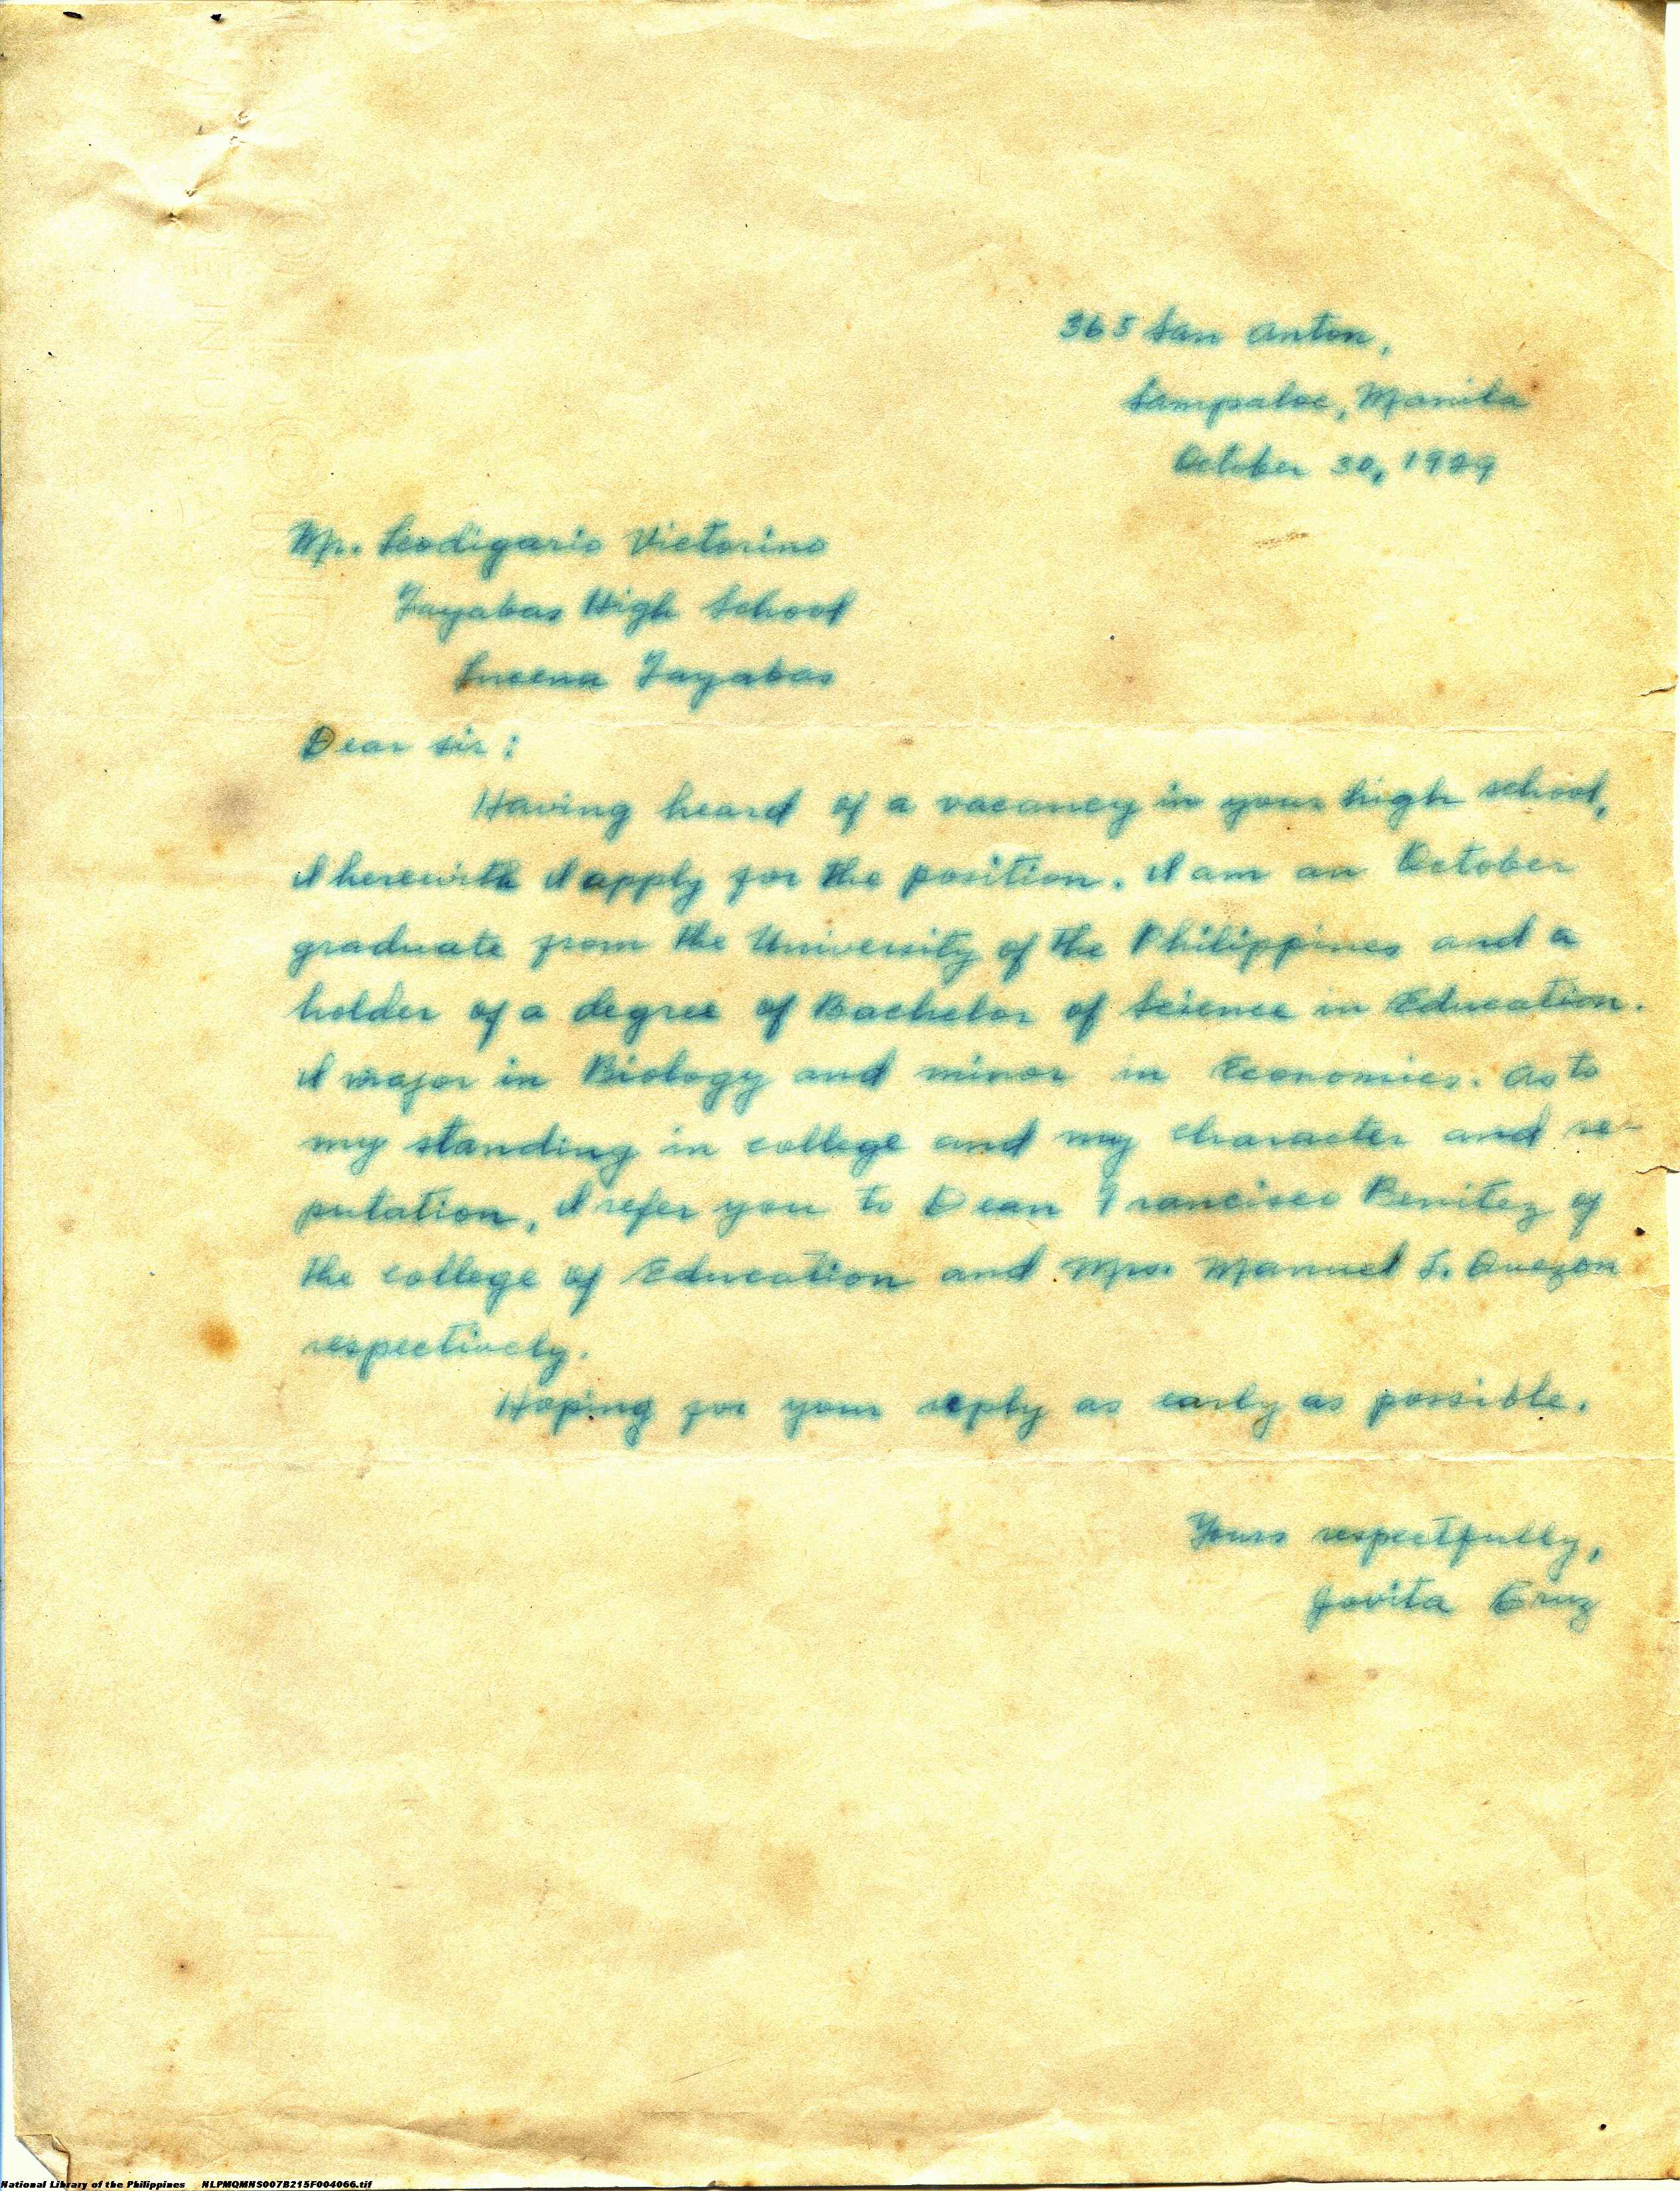 365 San Anton,
Sampaloc, Manila
October 30, 1929
Mr. Leodigario Victorino
Tayabas High School
Lucena Tayabas
Dear sir:
Having heard of a vacancy in your high school,
I herewith I apply for the position. I am an October
graduate from the University of the Philippines and a
holder of a degree of Bachelor of Science in Education.
I major in Biology and minor in Economics. As to
my standing in college and my character and re-
putation, I refer you to Dean Francisco Benitez of
the college of Education and Mrs. Manuel L. Quezon
respectively.
Hoping for your reply as early as possible.
Yours respectfully,
Jovita Cruz
National Library of the Philippines NLPMQMNS007B215F004066.tif